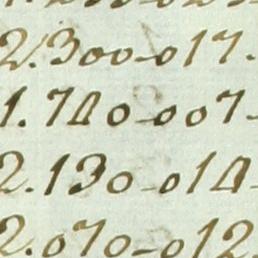 2.300-017-
1.740-007-
2.130-014-
2.070-012-